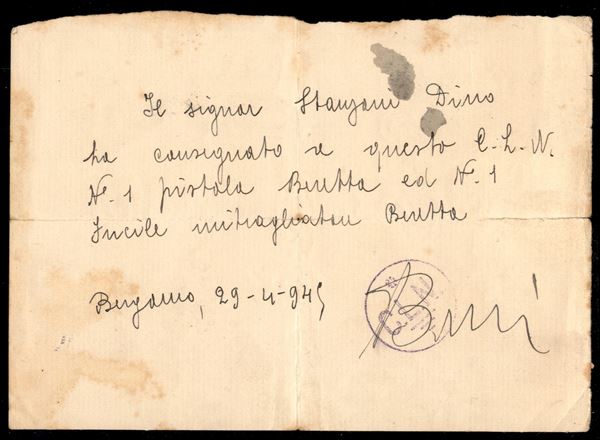 Il signor Stanzani Dino
ha consegnato a questo C.L.N.
N. 1 pistola Beretta ed N. 1
Fucile mitragliatore Beretta
Bergamo, 29-4-945